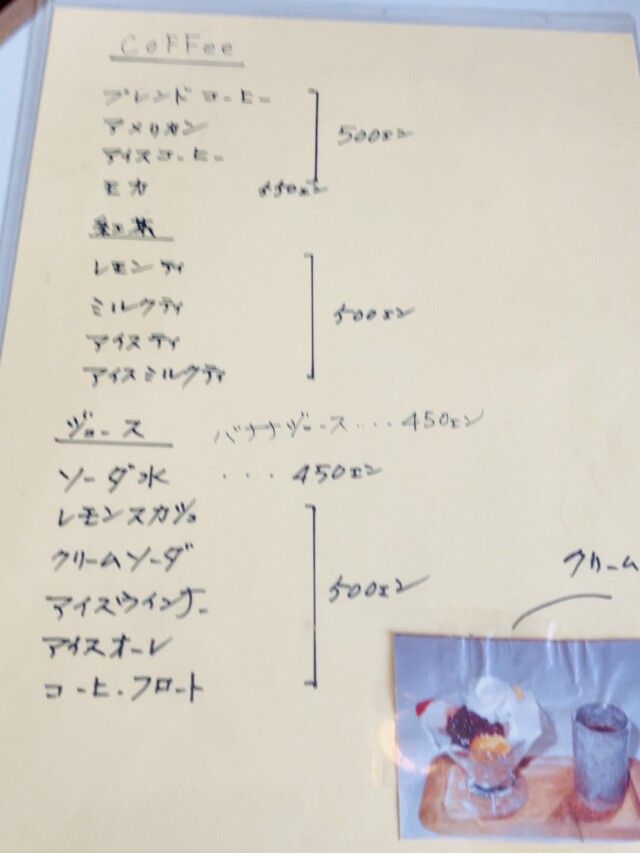 CoFFee
ブレンドコーヒー
アメリカン
アイスコーヒー
500エン
モカ 550エン
紅茶
レモンティ
ミルクティ
アイスティ
アイスミルクティ
500エン
ジュース バナナジュース････450エン
ソーダ水 ･･･450エン
レモンスカッシュ
クリームソーダ
アイスウインナー
アイスオーレ
コーヒーフロート
500エン
クリーム